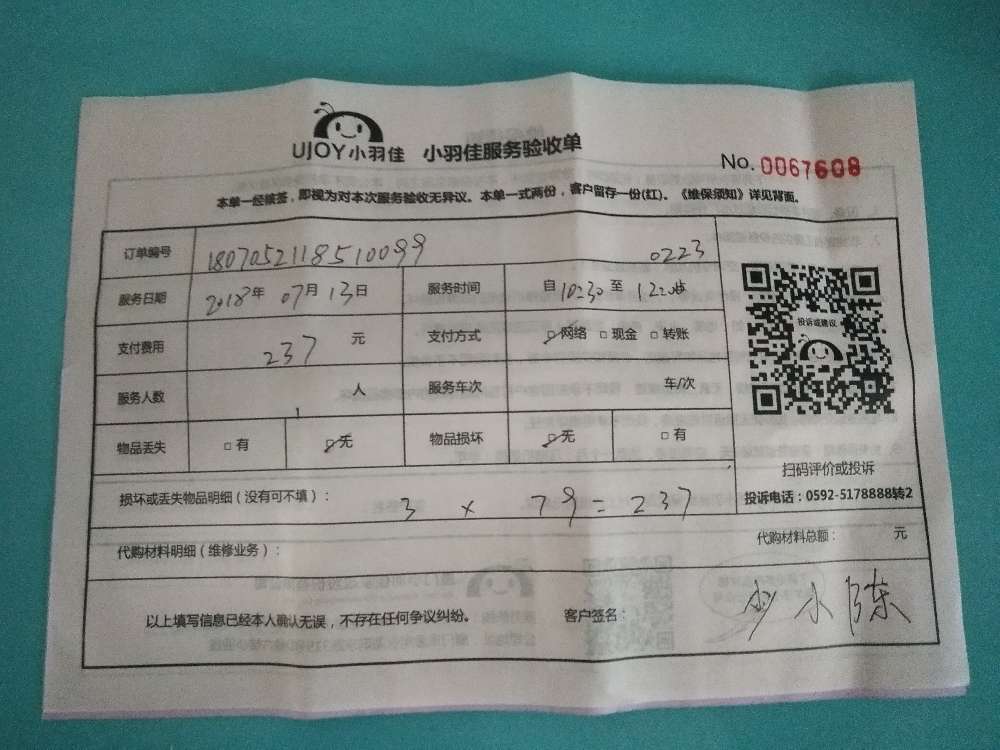 UJOY小羽佳 小羽佳服务验收单
No. 0067608
本单一经接签，即视为对本次服务验收无异议。本单一式两份，客户留存一份(红)。《维保须知》详见背面。
订单编号 1807052118510099 0223
服务日期 2018年 07月 13日 服务时间 自10:30至12:00
支付费用 237 元 支付方式 ☑网络 □现金 □转账
投诉或建议
服务人数 1 人 服务车次 车/次
物品丢失 □有 ☑无 物品损坏 ☑无 □有
扫码评价或投诉
损坏或丢失物品明细（没有可不填）： 3 × 79 = 237
投诉电话：0592-5178888转2
代购材料明细（维修业务）： 代购材料总额： 元
以上填写信息已经本人确认无误，不存在任何争议纠纷。 客户签名： 小陈